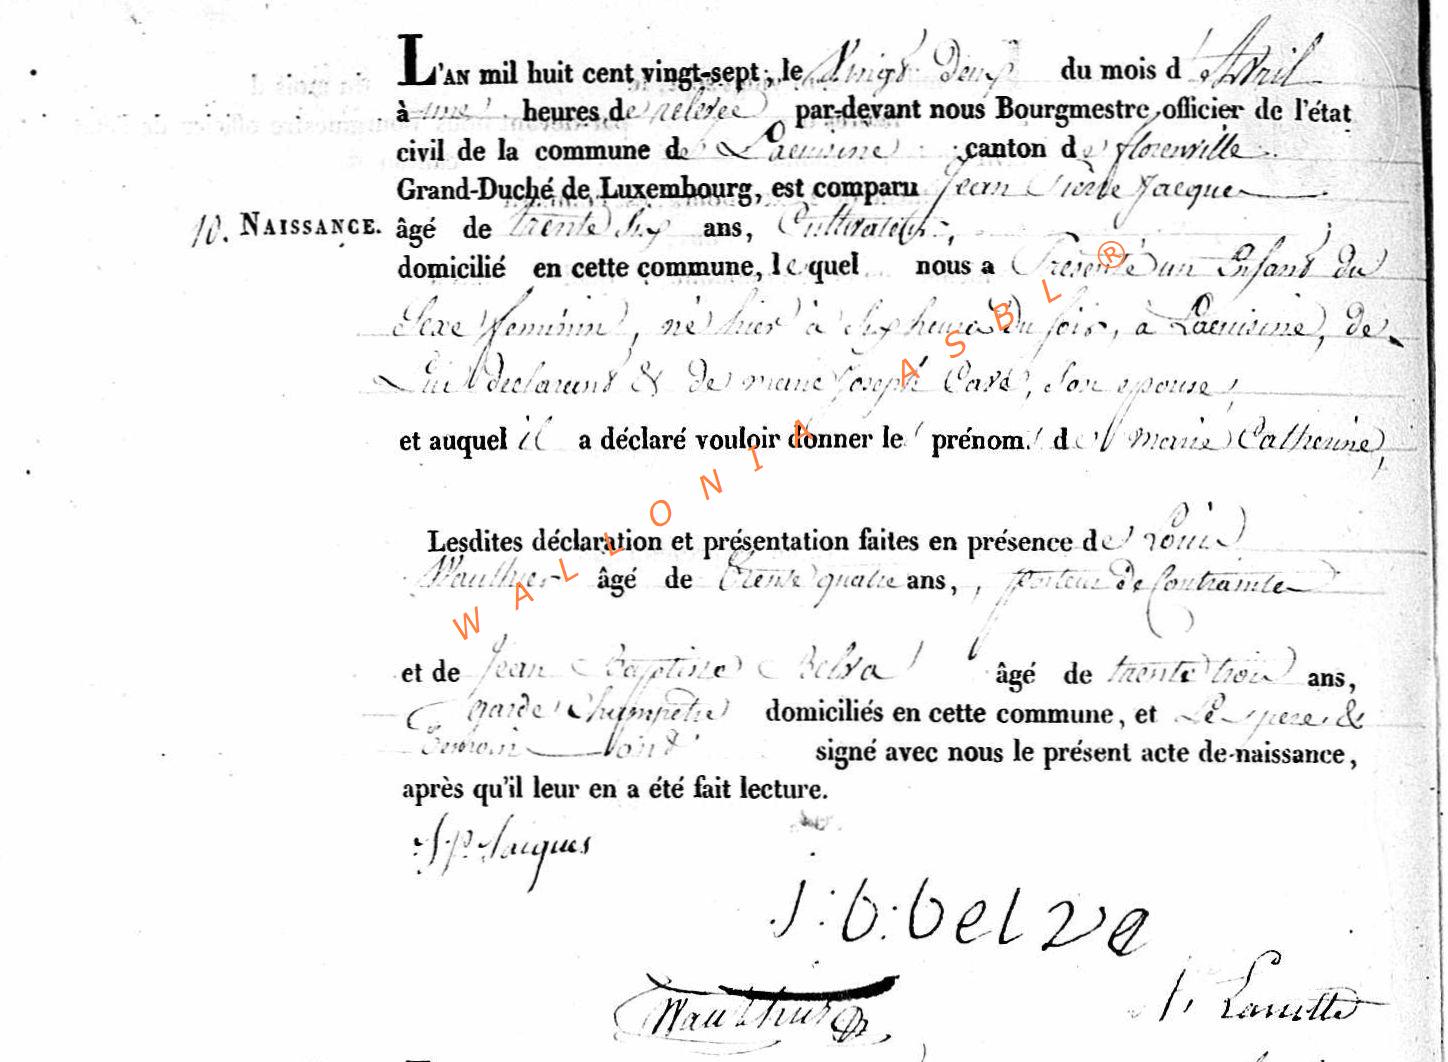 L'AN mil huit cent vingt-sept, le Vingt Deux du mois d'Avril
à une heures de relevée par-devant nous Bourgmestre, officier de l'état
civil de la commune de Lacuisine canton de florenville
Grand-Duché de Luxembourg, est comparu Jean Pierre Jacques
10. NAISSANCE. âgé de trente Six ans, Cultivateur,
domicilié en cette commune, le quel nous a Présenté un Enfant du
Sexe feminin, né hier à Six heures Du soir, a Lacuisine, de
Lui declarant & De marie Joseph Son epouse,
et auquel il a déclaré vouloir donner le prénom de marie Catherine,
Lesdites déclaration et présentation faites en présence de Louis
Wauthier âgé de trente quatre ans, porteur De Contrainte
et de Jean Baptiste Belva âgé de trente trois ans,
garde Champetre domiciliés en cette commune, et Le pere &
temoin ont signé avec nous le présent acte de naissance,
après qu'il leur en a été fait lecture.
J P Jacques
J. b. belva
Wauthier
WALLONIA ASBL ®